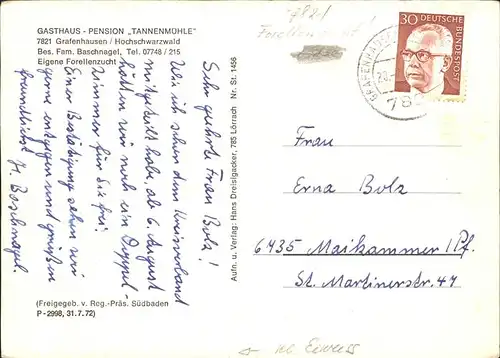 GASTHAUS - PENSION „TANNENMÜHLE"
7821 Grafenhausen / Hochschwarzwald
Bes. Fam. Baschnagel, Tel. 07748 / 215
Eigene Forellenzucht
Sehr geehrte Frau Bolz!
Wie ich schon dem Kreisverband
mitgeteilt habe, ab 6. August
hätten wir noch ein Doppel-
zimmer für Sie frei.
Einer Bestätigung sehen wir
gerne entgegen und grüßen
freundlichst H. Baschnagel.
(Freigegeb. v. Reg.-Präs. Südbaden
P - 2998, 31.7.72)
Aufn. u. Verlag: Hans Dreisigacker, 785 Lörrach Nr. St. 1456
7821
30 DEUTSCHE BUNDESPOST
Frau
Erna Bolz
6735 Maikammer / Pf.
St. Martinerstr. 47